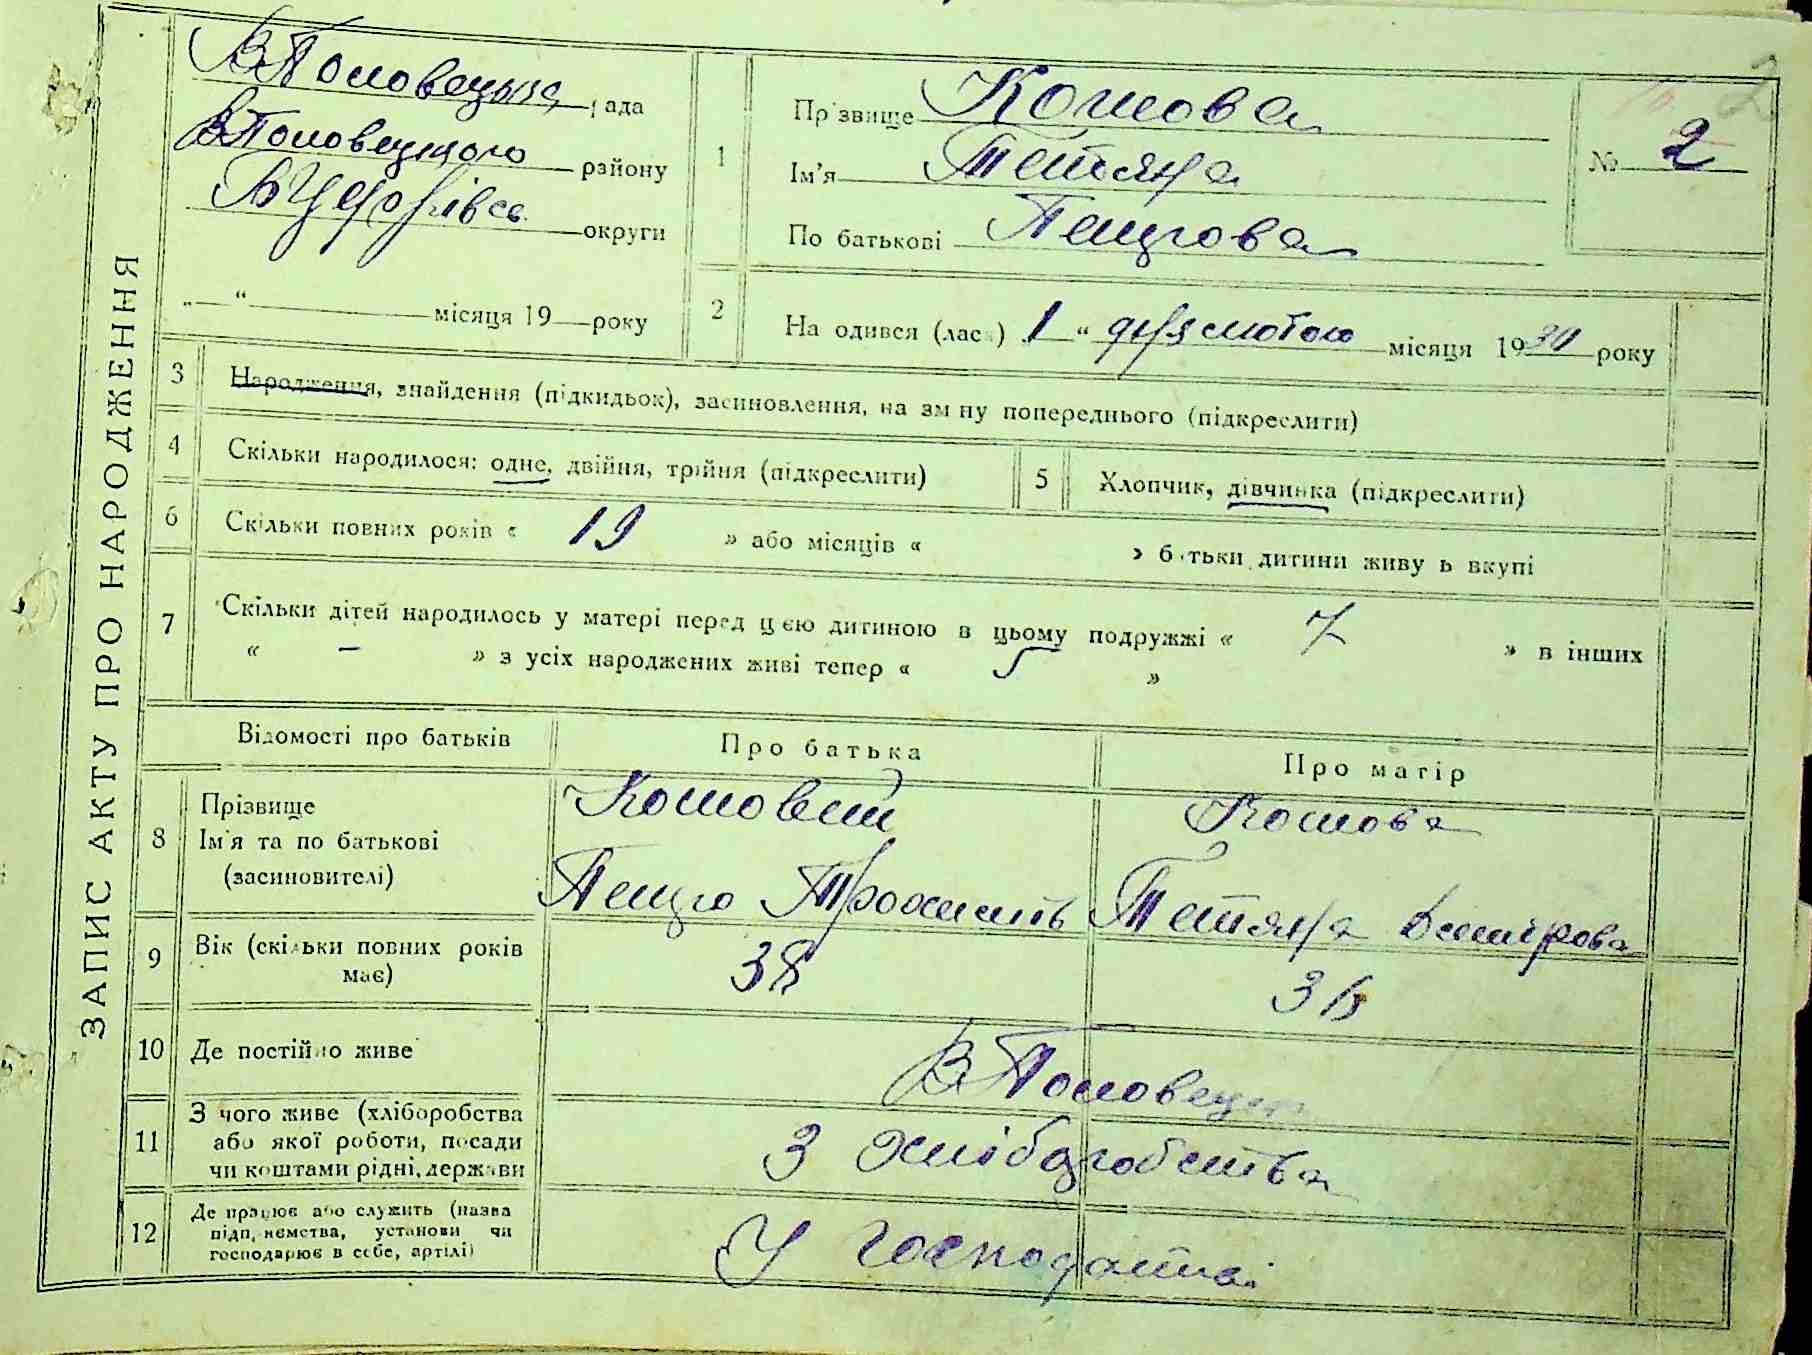 ЗАПИС АКТУ ПРО НАРОДЖЕННЯ
В Половецька рада
В Половецького району
БЦерківсь округи
„ “ місяця 19 року
1
Прізвище Котова
Ім'я Тетяна
По батькові Петрова
№ 2
2
2 На одився (лась) 1 “ лютого місяця 1930 року
3 Народження, знайдення (підкидьок), засиновлення, на зміну попереднього (підкреслити)
4 Скільки народилося: одне, двійня, трійня (підкреслити) 5 Хлопчик, дівчинка (підкреслити)
6 Скільки повних років « 19 » або місяців « » батьки дитини живуть вкупі
7 Скільки дітей народилось у матері перед цією дитиною в цьому подружжі « 7 » в інших
« – » з усіх народжених живі тепер « 5 »
Відомості про батьків Про батька Про матір
8 Прізвище
Ім'я та по батькові
(засиновителі)
Котовий Котова
Петро Тетяна
9 Вік (скільки повних років має) 38
10 Де постійно живе В Половецьк
11 З чого живе (хліборобства або якої роботи, посади чи коштами рідні, держави З хліборобства
12 Де працює або служить (назва підприємства, установи чи господарює в себе, артілі) У господарстві